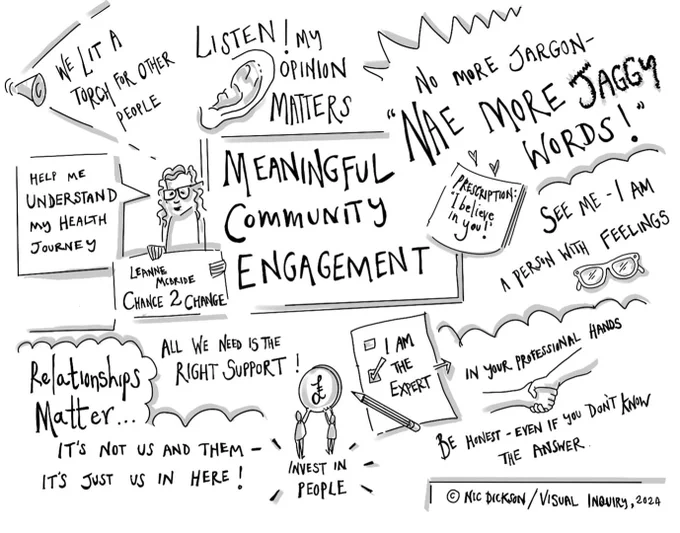 WE LIT A
TORCH FOR OTHER
PEOPLE
LISTEN! MY
OPINION
MATTERS
NO MORE JARGON-
"NAE MORE JAGGY
WORDS!"
HELP ME
UNDERSTAND
MY HEALTH
JOURNEY
LEANNE
MCBRIDE
CHANCE 2 CHANGE
MEANINGFUL
COMMUNITY
ENGAGEMENT
PRESCRIPTION:
"I believe
in you!"
SEE ME - I AM
A PERSON WITH FEELINGS
Relationships
Matter...
ALL WE NEED IS THE
RIGHT SUPPORT!
IT'S NOT US AND THEM -
IT'S JUST US IN HERE!
£
INVEST IN
PEOPLE
I AM
THE
EXPERT
IN YOUR PROFESSIONAL HANDS
BE HONEST - EVEN IF YOU DON'T KNOW
THE ANSWER.
© NIC DICKSON / VISUAL INQUIRY, 2024